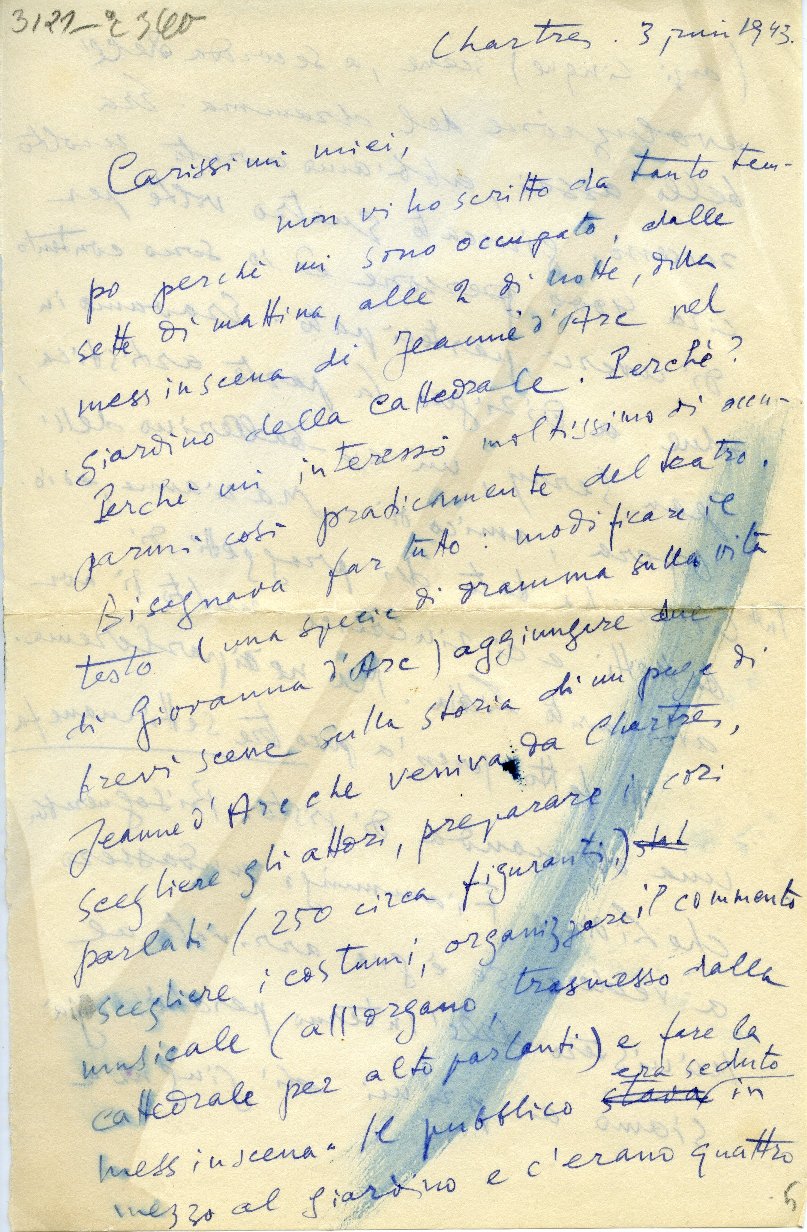 Chartres. 3 juin 1943.
Carissimi miei,
non vi ho scritto da tanto tem-
po perchè mi sono occupato, dalle
sette di mattina, alle 2 di notte, della
mess inscena di Jeanne d'Arc nel
giardino della cattedrale. Perchè?
Perchè mi interessò moltissimo di occu-
parmi così praticamente del teatro.
Bisognava far tutto: modificare il
testo (una specie di dramma sulla vita
di Giovanna d'Arc) aggiungere due
brevi scene sulla storia di un page di
Jeanne d'Arc che veniva da Chartres,
scegliere gli attori, preparare i cori
parlati (250 circa figuranti,)
scegliere i costumi, organizzare il commento
musicale (all'organo, trasmesso dalla
cattedrale per alto parlanti) e fare la
mess inscena. Il pubblico stava era seduto in
mezzo al giardino e c'erano quattro
5